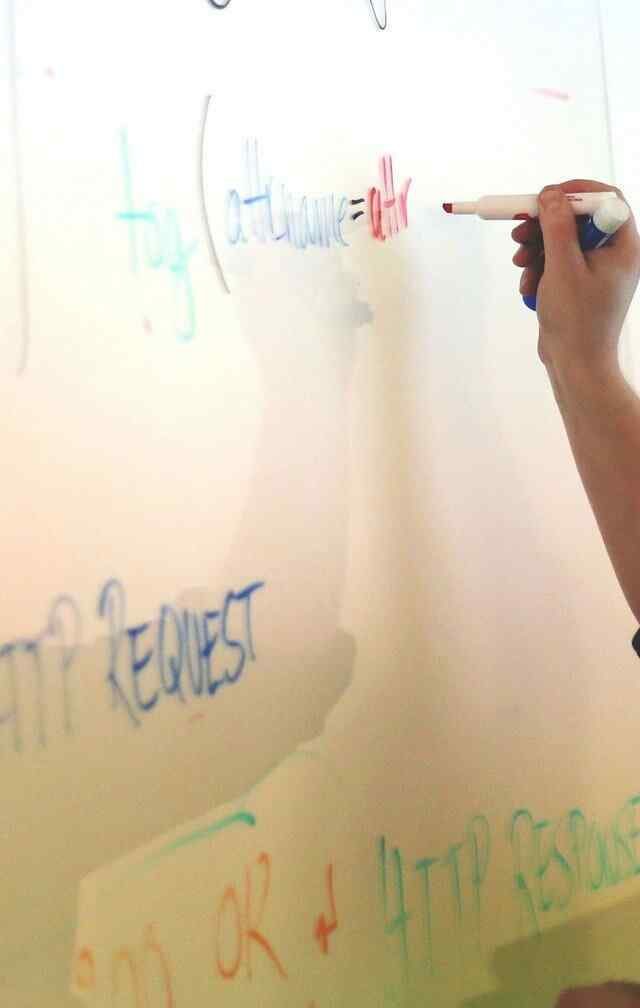 tag (attrName=attr
HTTP REQUEST
OR HTTP RESPONSE